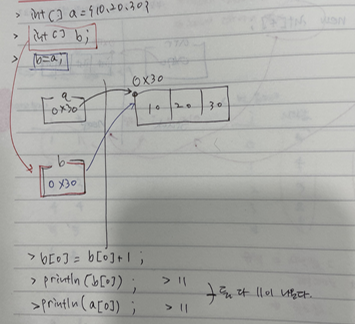 > int[] a = {10, 20, 30}
> int[] b;
> b=a;
0x30
a
0x30
10 20 30
b
0x30
> b[0] = b[0]+1 ;
> println(b[0]) ; > 11
> println(a[0]) ; > 11
둘 다 11이 나온다.